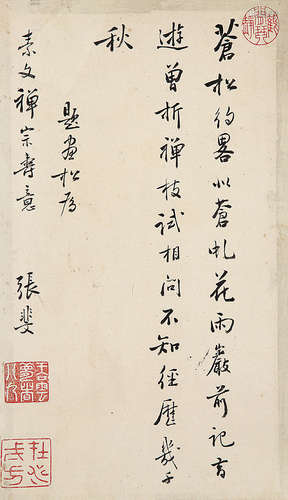 蒼松約略似蒼虬花雨巖前記舊
遊曾折禅枝試相問不知經歷幾千
秋
題畫松為
素文禅宗壽意
張斐